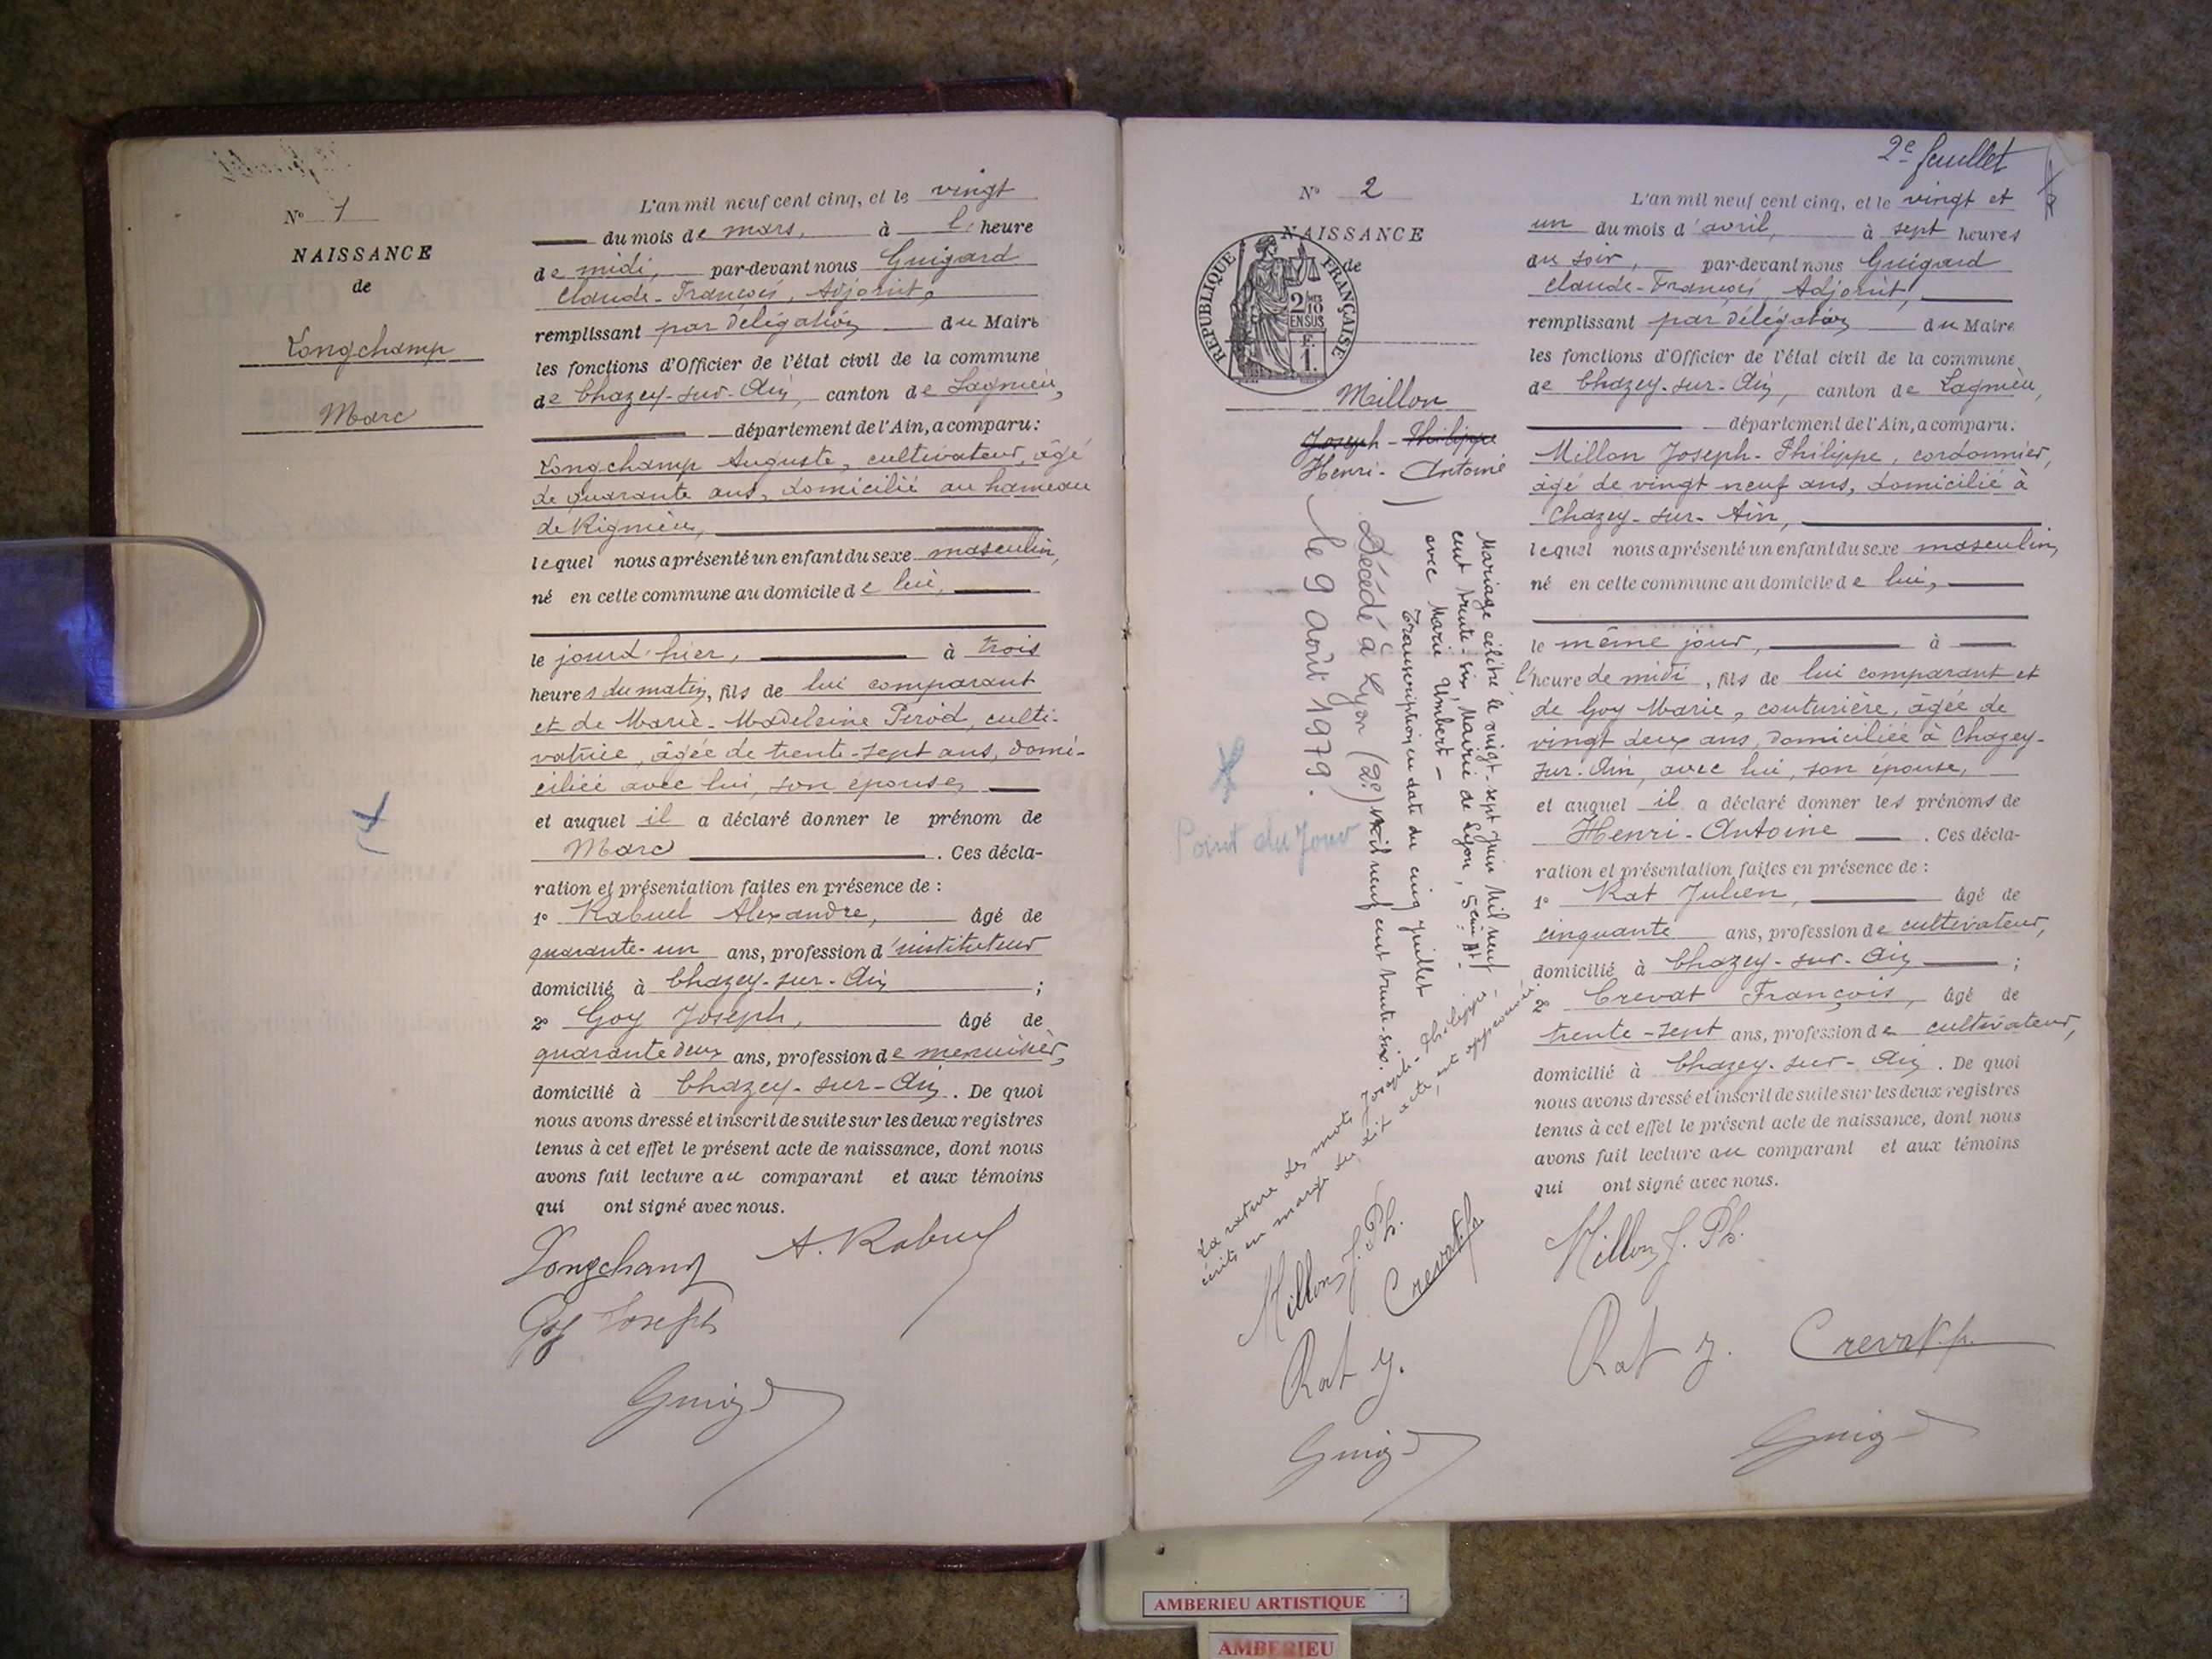 N° 1
NAISSANCE
de
Longchamp
Marc
L'an mil neuf cent cinq, et le vingt
du mois de mars, à l' heure
de midi, par-devant nous Guigard
Claude-François, Adjoint,
remplissant par délégation du Maire
les fonctions d'Officier de l'état civil de la commune
de Chazey-sur-Ain, canton de Lagnieu,
département de l'Ain, a comparu:
Longchamp Auguste, cultivateur, âgé
de quarante ans, domicilié au hameau
de Rignieu,
lequel nous a présenté un enfant du sexe masculin,
né en cette commune au domicile de lui,
le jourd'hier, à trois
heures du matin, fils de lui comparant
et de Marie-Madeleine Perod, culti-
vatrice, âgée de trente-sept ans, domi-
ciliée avec lui, son épouse,
et auquel il a déclaré donner le prénom de
Marc . Ces décla-
ration et présentation faites en présence de :
1° Rabuel Alexandre, âgé de
quarante-un ans, profession d'instituteur
domicilié à Chazey-sur-Ain ;
2° Goy Joseph, âgé de
quarante deux ans, profession de menuisier,
domicilié à Chazey-sur-Ain. De quoi
nous avons dressé et inscrit de suite sur les deux registres
tenus à cet effet le présent acte de naissance, dont nous
avons fait lecture au comparant et aux témoins
qui ont signé avec nous.
Longchamp A. Rabuel
Goy Joseph
Guigd
2e feuillet
N° 2
NAISSANCE
de
RÉPUBLIQUE FRANÇAISE
2/10
EN SUS
F.
1.
Millon
Joseph-Philippe
Henri-Antoine
Mariage célébré le vingt-sept Juin Mil neuf
cent trente-six, Mairie de Lyon, 5ème At-
avec Marie Umbert-
Transcription en date du cinq Juillet
Mil neuf cent trente-six.
Décédé à Lyon (2e)
le 9 août 1979.
Point du Jour
La rature des mots Joseph-Philippe,
écrits en marge du dit acte, est approuvée.
Millon J. Ph.
Crevat f.
Rat J.
Guigd
L'an mil neuf cent cinq, et le vingt et
un du mois d'avril, à sept heures
du soir, par-devant nous Guigard
Claude-François, Adjoint,
remplissant par délégation du Maire
les fonctions d'Officier de l'état civil de la commune
de Chazey-sur-Ain, canton de Lagnieu,
département de l'Ain, a comparu:
Millon Joseph-Philippe, cordonnier,
âgé de vingt neuf ans, domicilié à
Chazey-sur-Ain,
lequel nous a présenté un enfant du sexe masculin,
né en cette commune au domicile de lui,
le même jour, à
l'heure de midi, fils de lui comparant et
de Goy Marie, couturière, âgée de
vingt deux ans, domiciliée à Chazey-
sur-Ain, avec lui, son épouse,
et auquel il a déclaré donner les prénoms de
Henri-Antoine . Ces décla-
ration et présentation faites en présence de :
1° Rat Julien, âgé de
cinquante ans, profession de cultivateur,
domicilié à Chazey-sur-Ain ;
2° Crevat François, âgé de
trente-sept ans, profession de cultivateur,
domicilié à Chazey-sur-Ain. De quoi
nous avons dressé et inscrit de suite sur les deux registres
tenus à cet effet le présent acte de naissance, dont nous
avons fait lecture au comparant et aux témoins
qui ont signé avec nous.
Millon J. Ph.
Rat J. Crevat f.
Guigd
AMBERIEU ARTISTIQUE
AMBERIEU